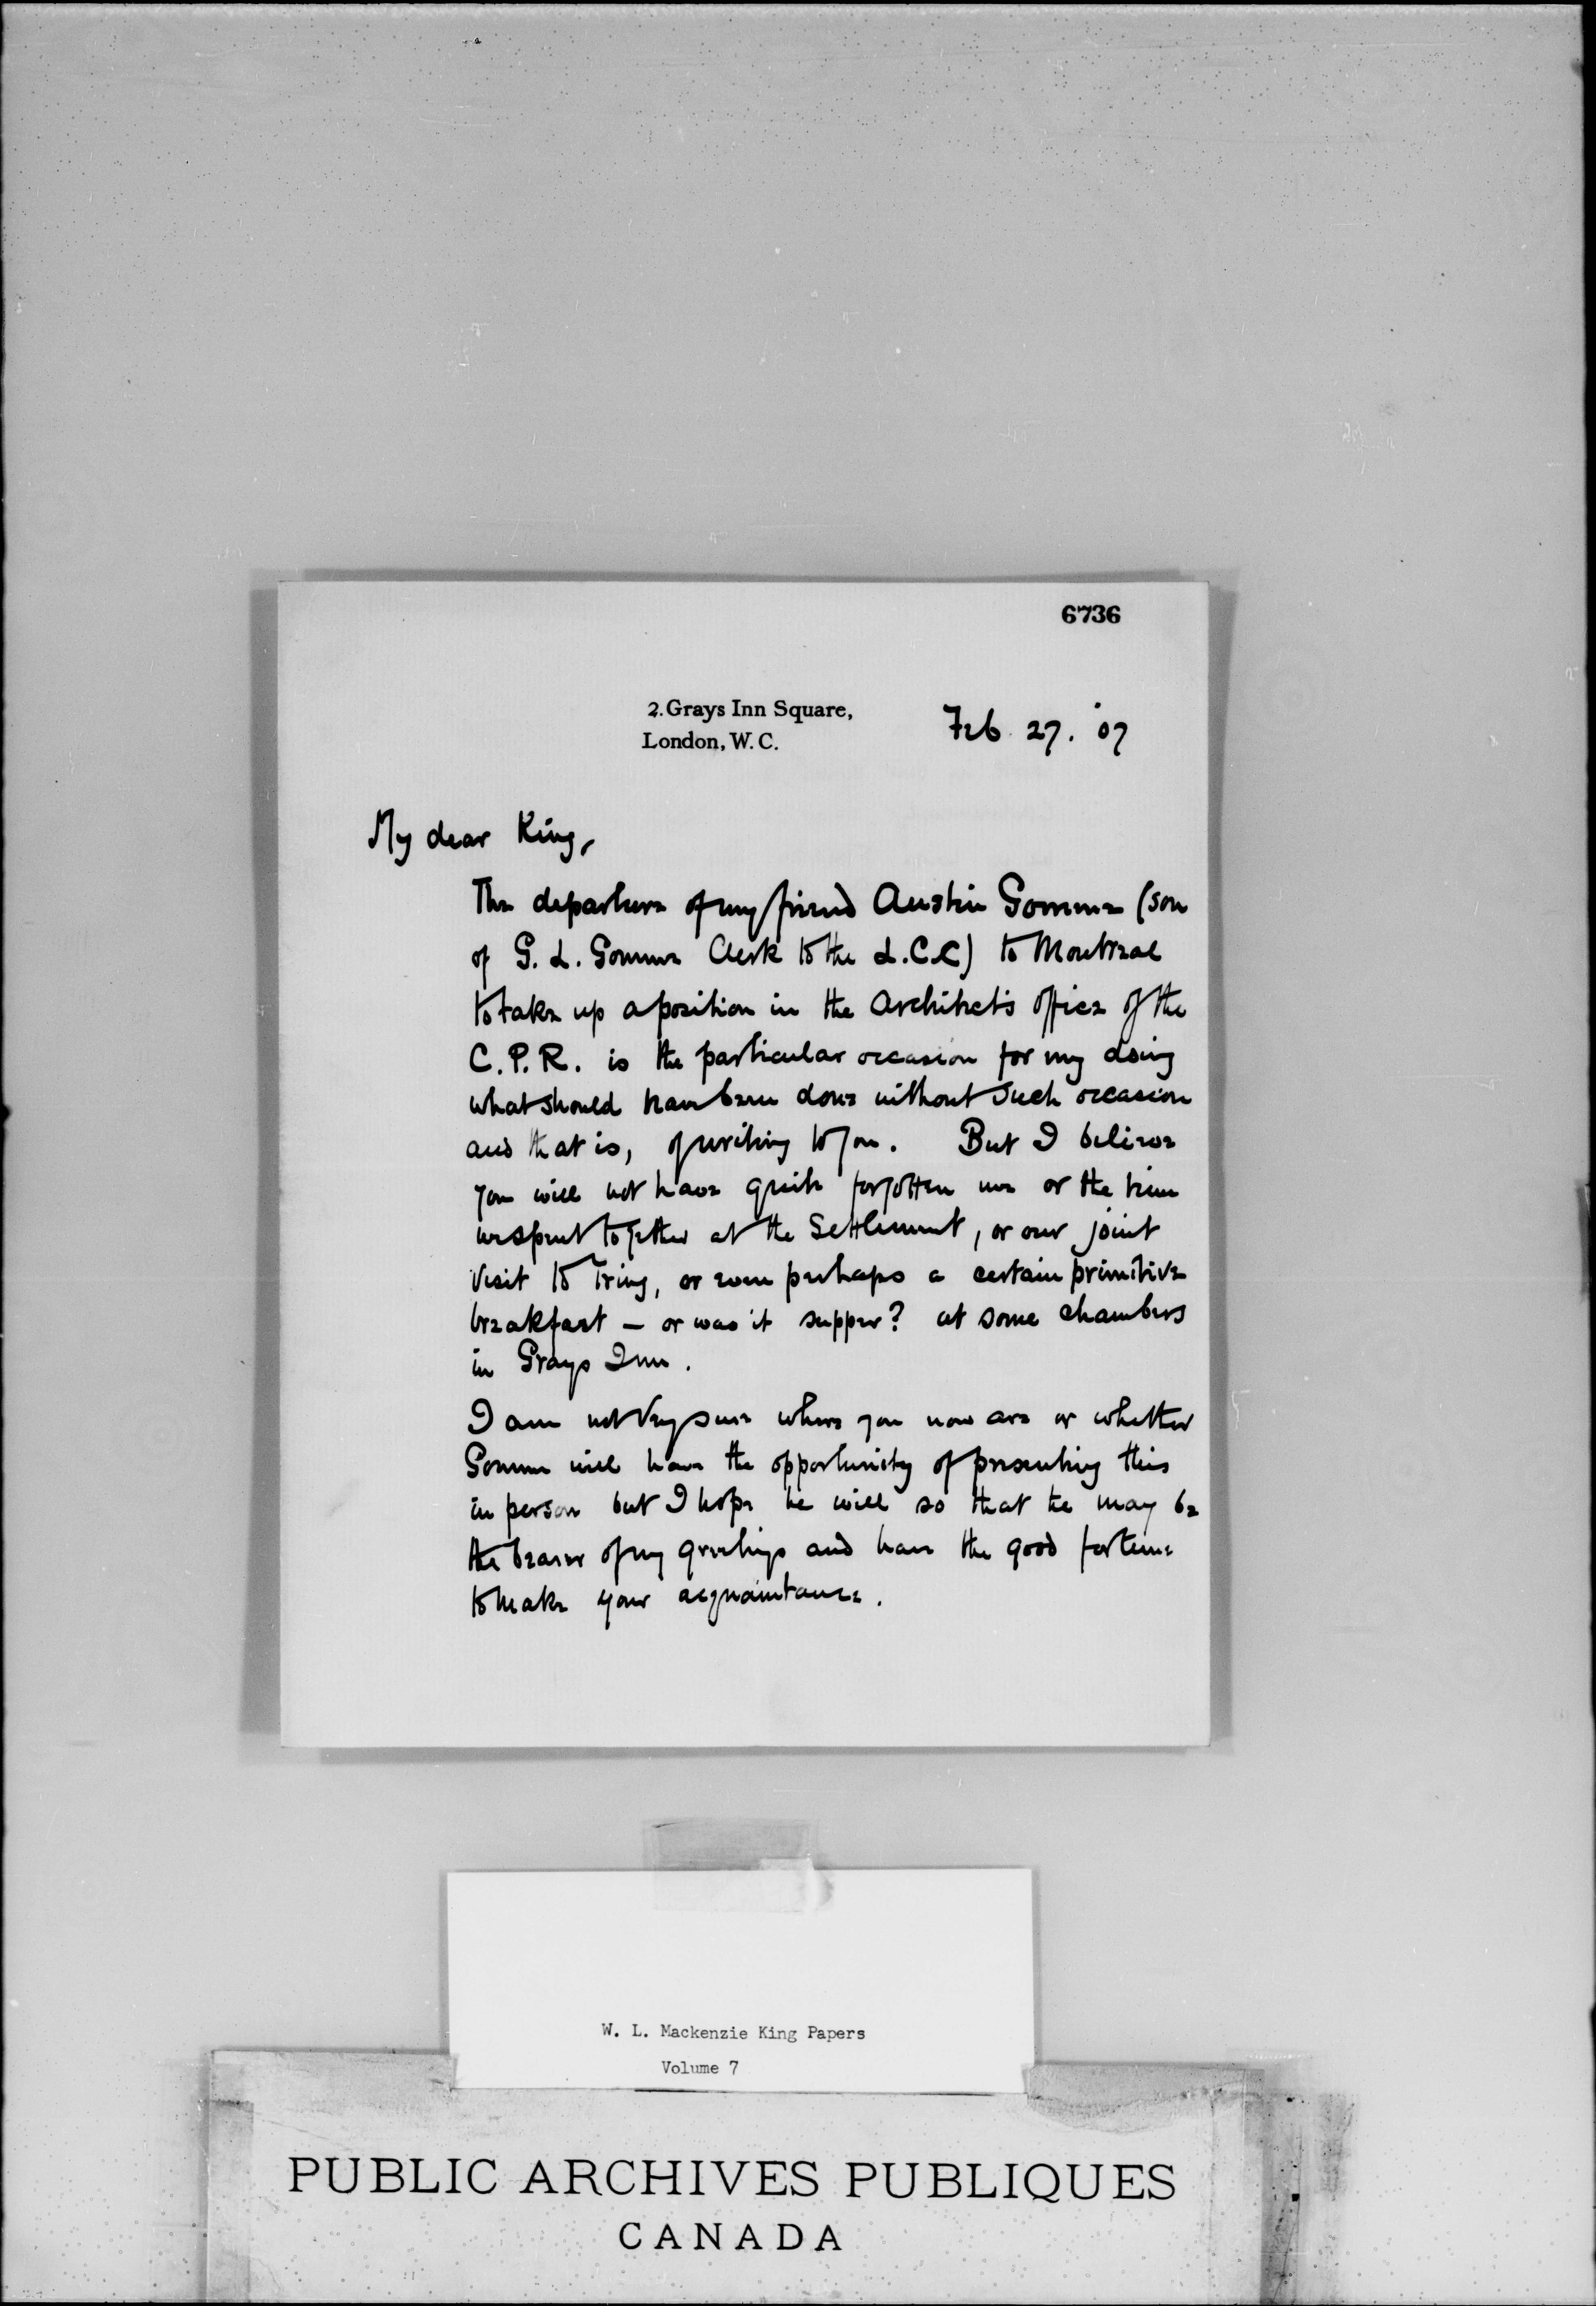 6736
2. Grays Inn Square,
London, W. C.
Feb 27. '07
My dear King,
The departure of my friend Austin Gomme (son
of G. L. Gomme Clerk to the L.C.C) to Montreal
to take up a position in the Architect's office of the
C. P. R. is the particular occasion for my doing
what should have been done without such occasion
and that is, of writing to you. But I believe
you will not have quite forgotten me or the time
we spent together at the Settlement, or our joint
visit to Tring, or even perhaps a certain primitive
breakfast — or was it supper? at some chambers
in Grays Inn.
I am not very sure where you now are or whether
Gomme will have the opportunity of presenting this
in person but I hope he will so that he may be
the bearer of my greetings and have the good fortune
to make your acquaintance.
W. L. Mackenzie King Papers
Volume 7
PUBLIC ARCHIVES PUBLIQUES
CANADA